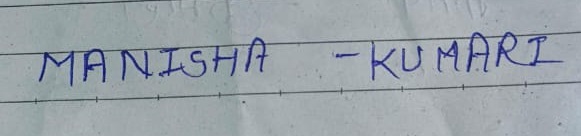 MANISHA - KUMARI